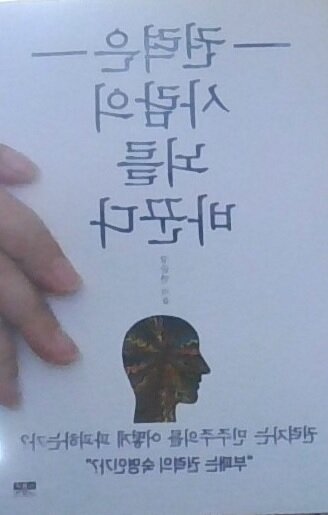 권력은
사람의
뇌를
바꾼다
강준만 지음
권력자는 민주주의를 어떻게 파괴하는가?
"부패는 권력의 숙명인가?"